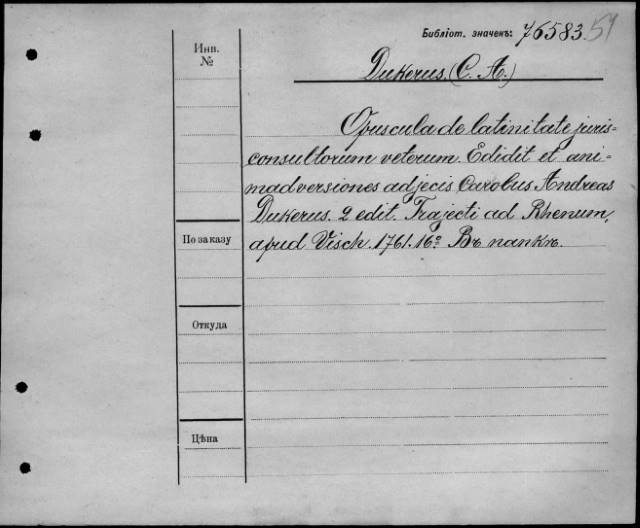 Библіот. значекъ: 76583. 51
Инв.
№
Dukerus. (C. A.)
Opuscula de latinitate juris-
consultorum veterum. Edidit et ani-
madversiones adjecis Carolus Andreas
Dukerus. 2 edit. Trajecti ad Rhenum,
По заказу
apud Visch. 1761. 16º. Въ папкѣ.
Откуда
Цѣна